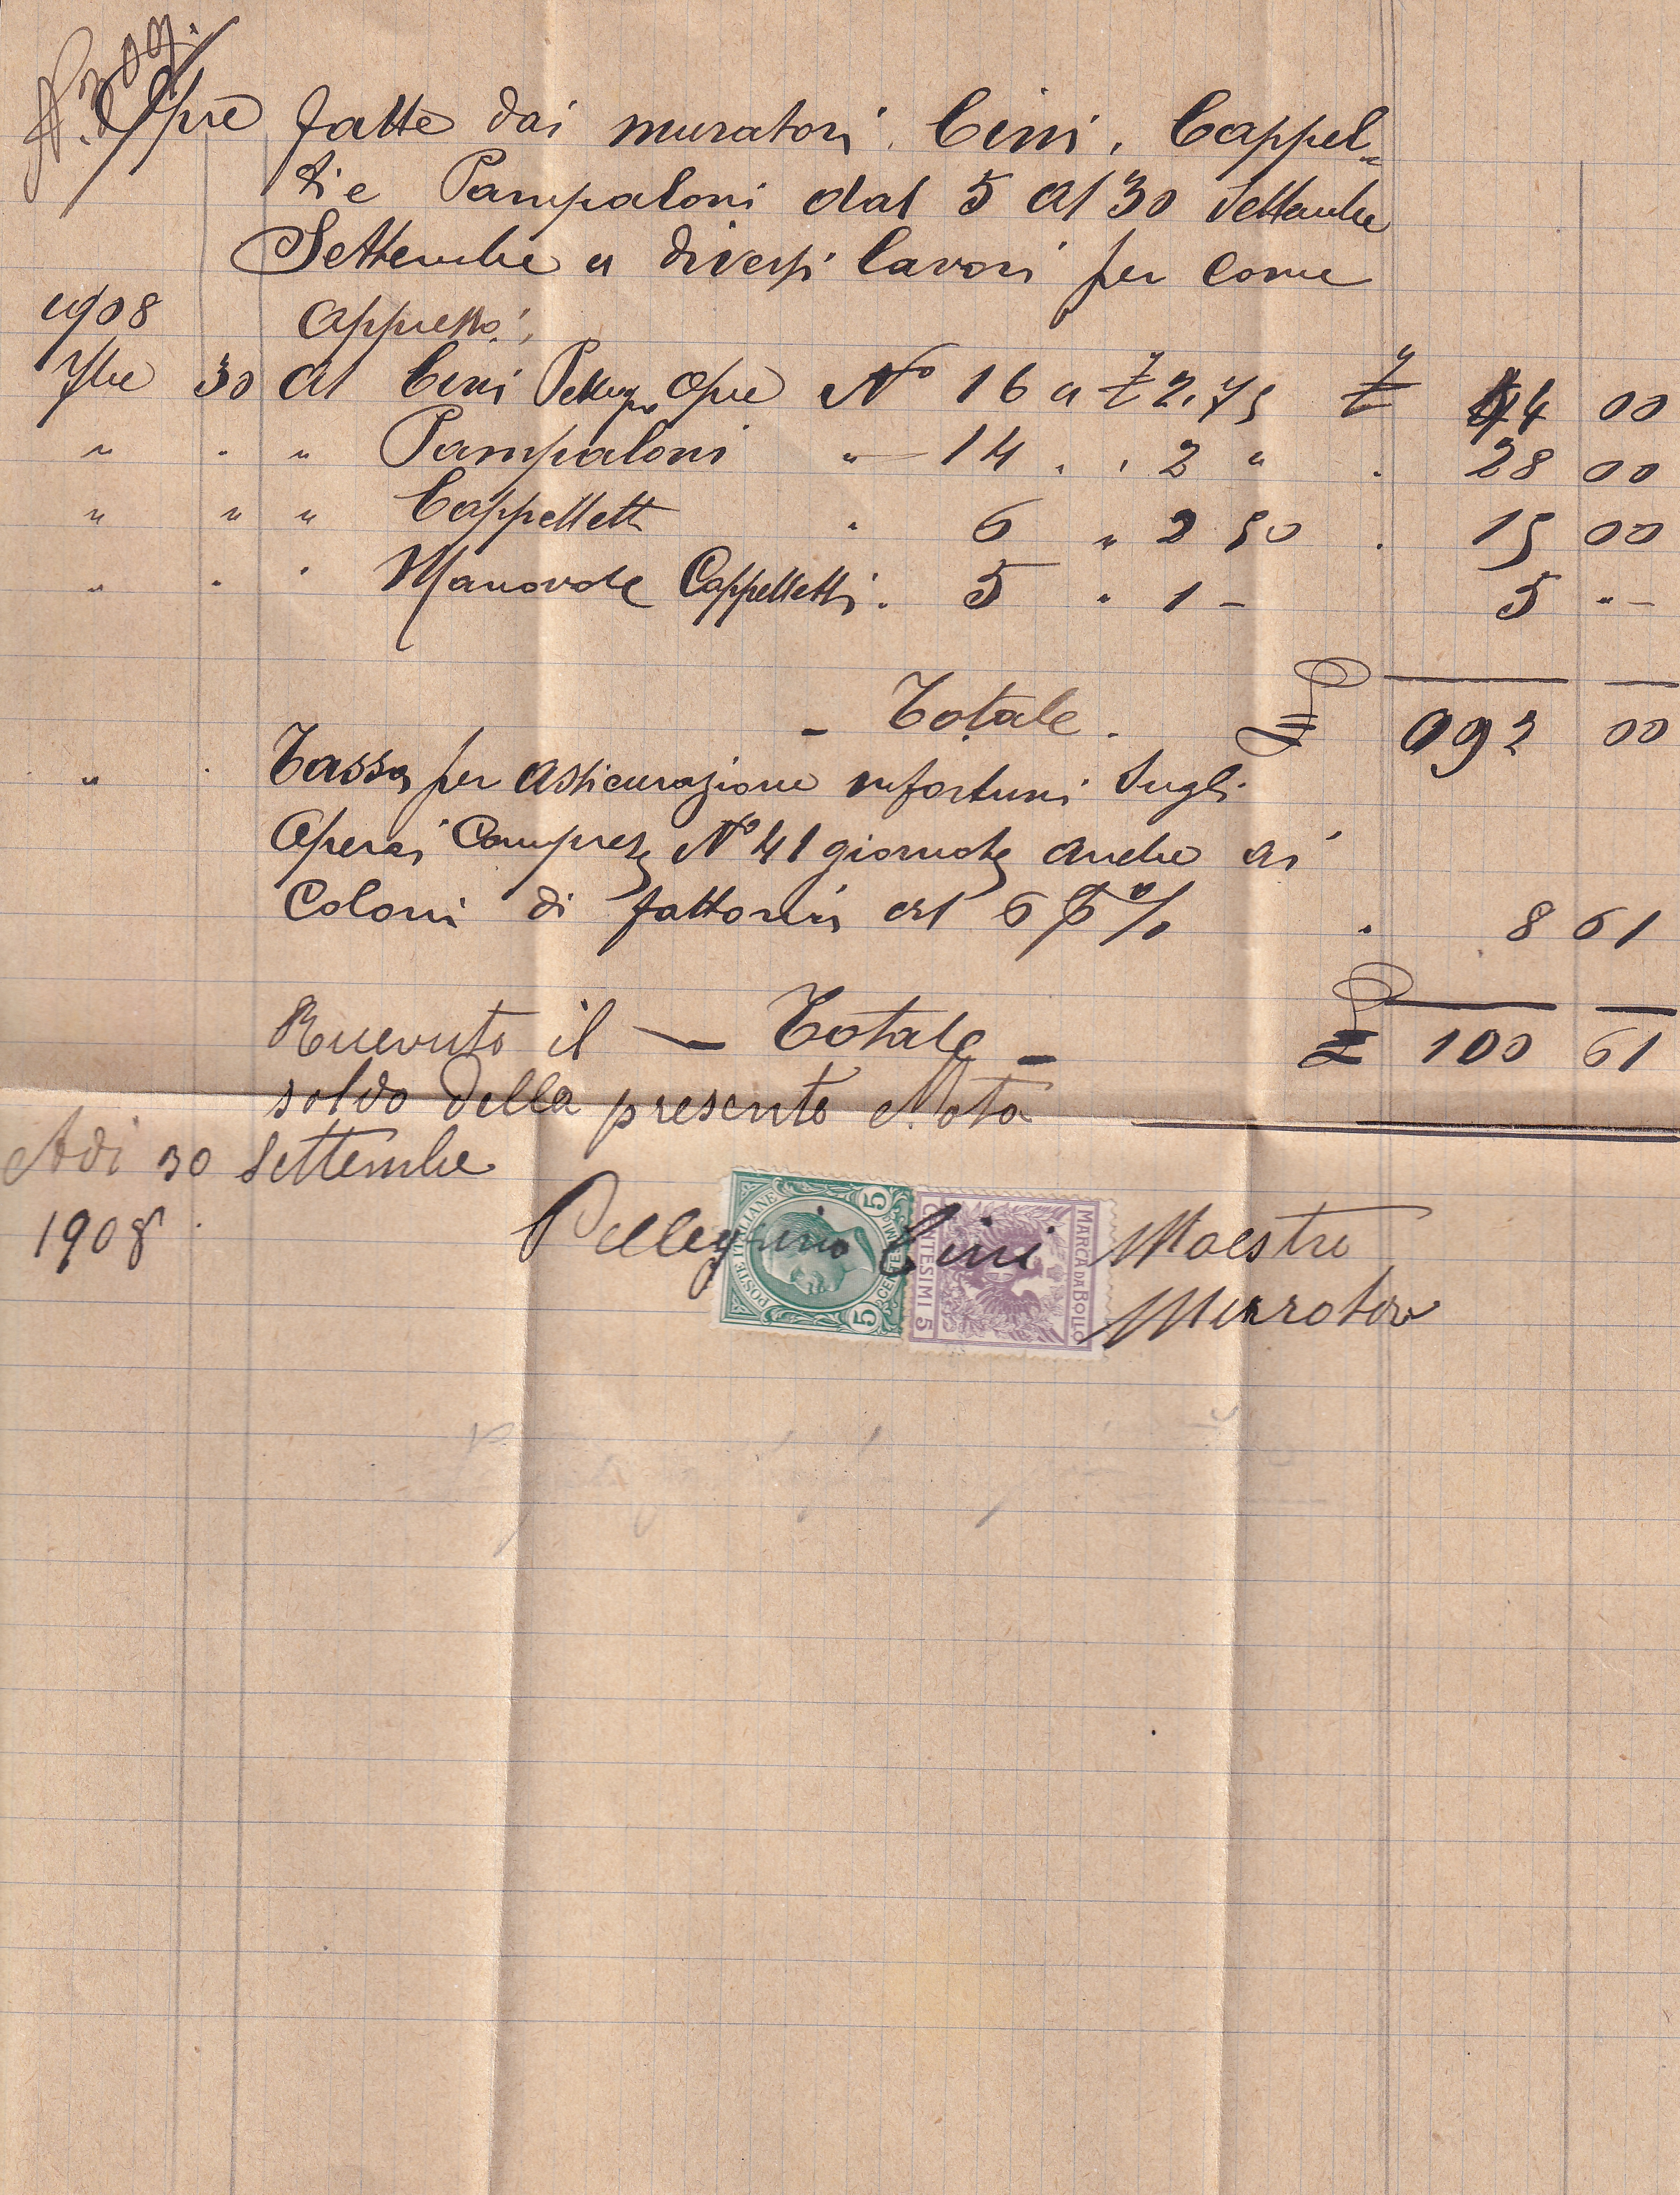 Opre fatte dai muratori Cini, Cappel=
ti e Pampaloni dal 5 al 30 Settembre
Settembre a diversi lavori per come
1908 appresso:
7bre 30 Al Cini Pellegro Opre No 16 a £ 2.75 £ 44 00
" . " Pampaloni " 14 . . 2 " . 28 00
" " " Cappelletti . 6 " 2 50 . 15 00
" . . Manovole Cappelletti . 5 " 1 - 5 " -
- Totale . £ 092 00
. " . Tassa per assicurazione infortuni sugli
Operai Compreso No 41 giornate anche ai
Coloni di fattoria al 6 % . 8 61
Ricevuto il — Totale — £ 100 61
soldo della presente Nota
Adi 30 Settembre
1908 .
Pellegrino Cini Maestro
Murotore
POSTE ITALIANE
5 CENTESIMI 5
MARCA DA BOLLO
CENTESIMI 5